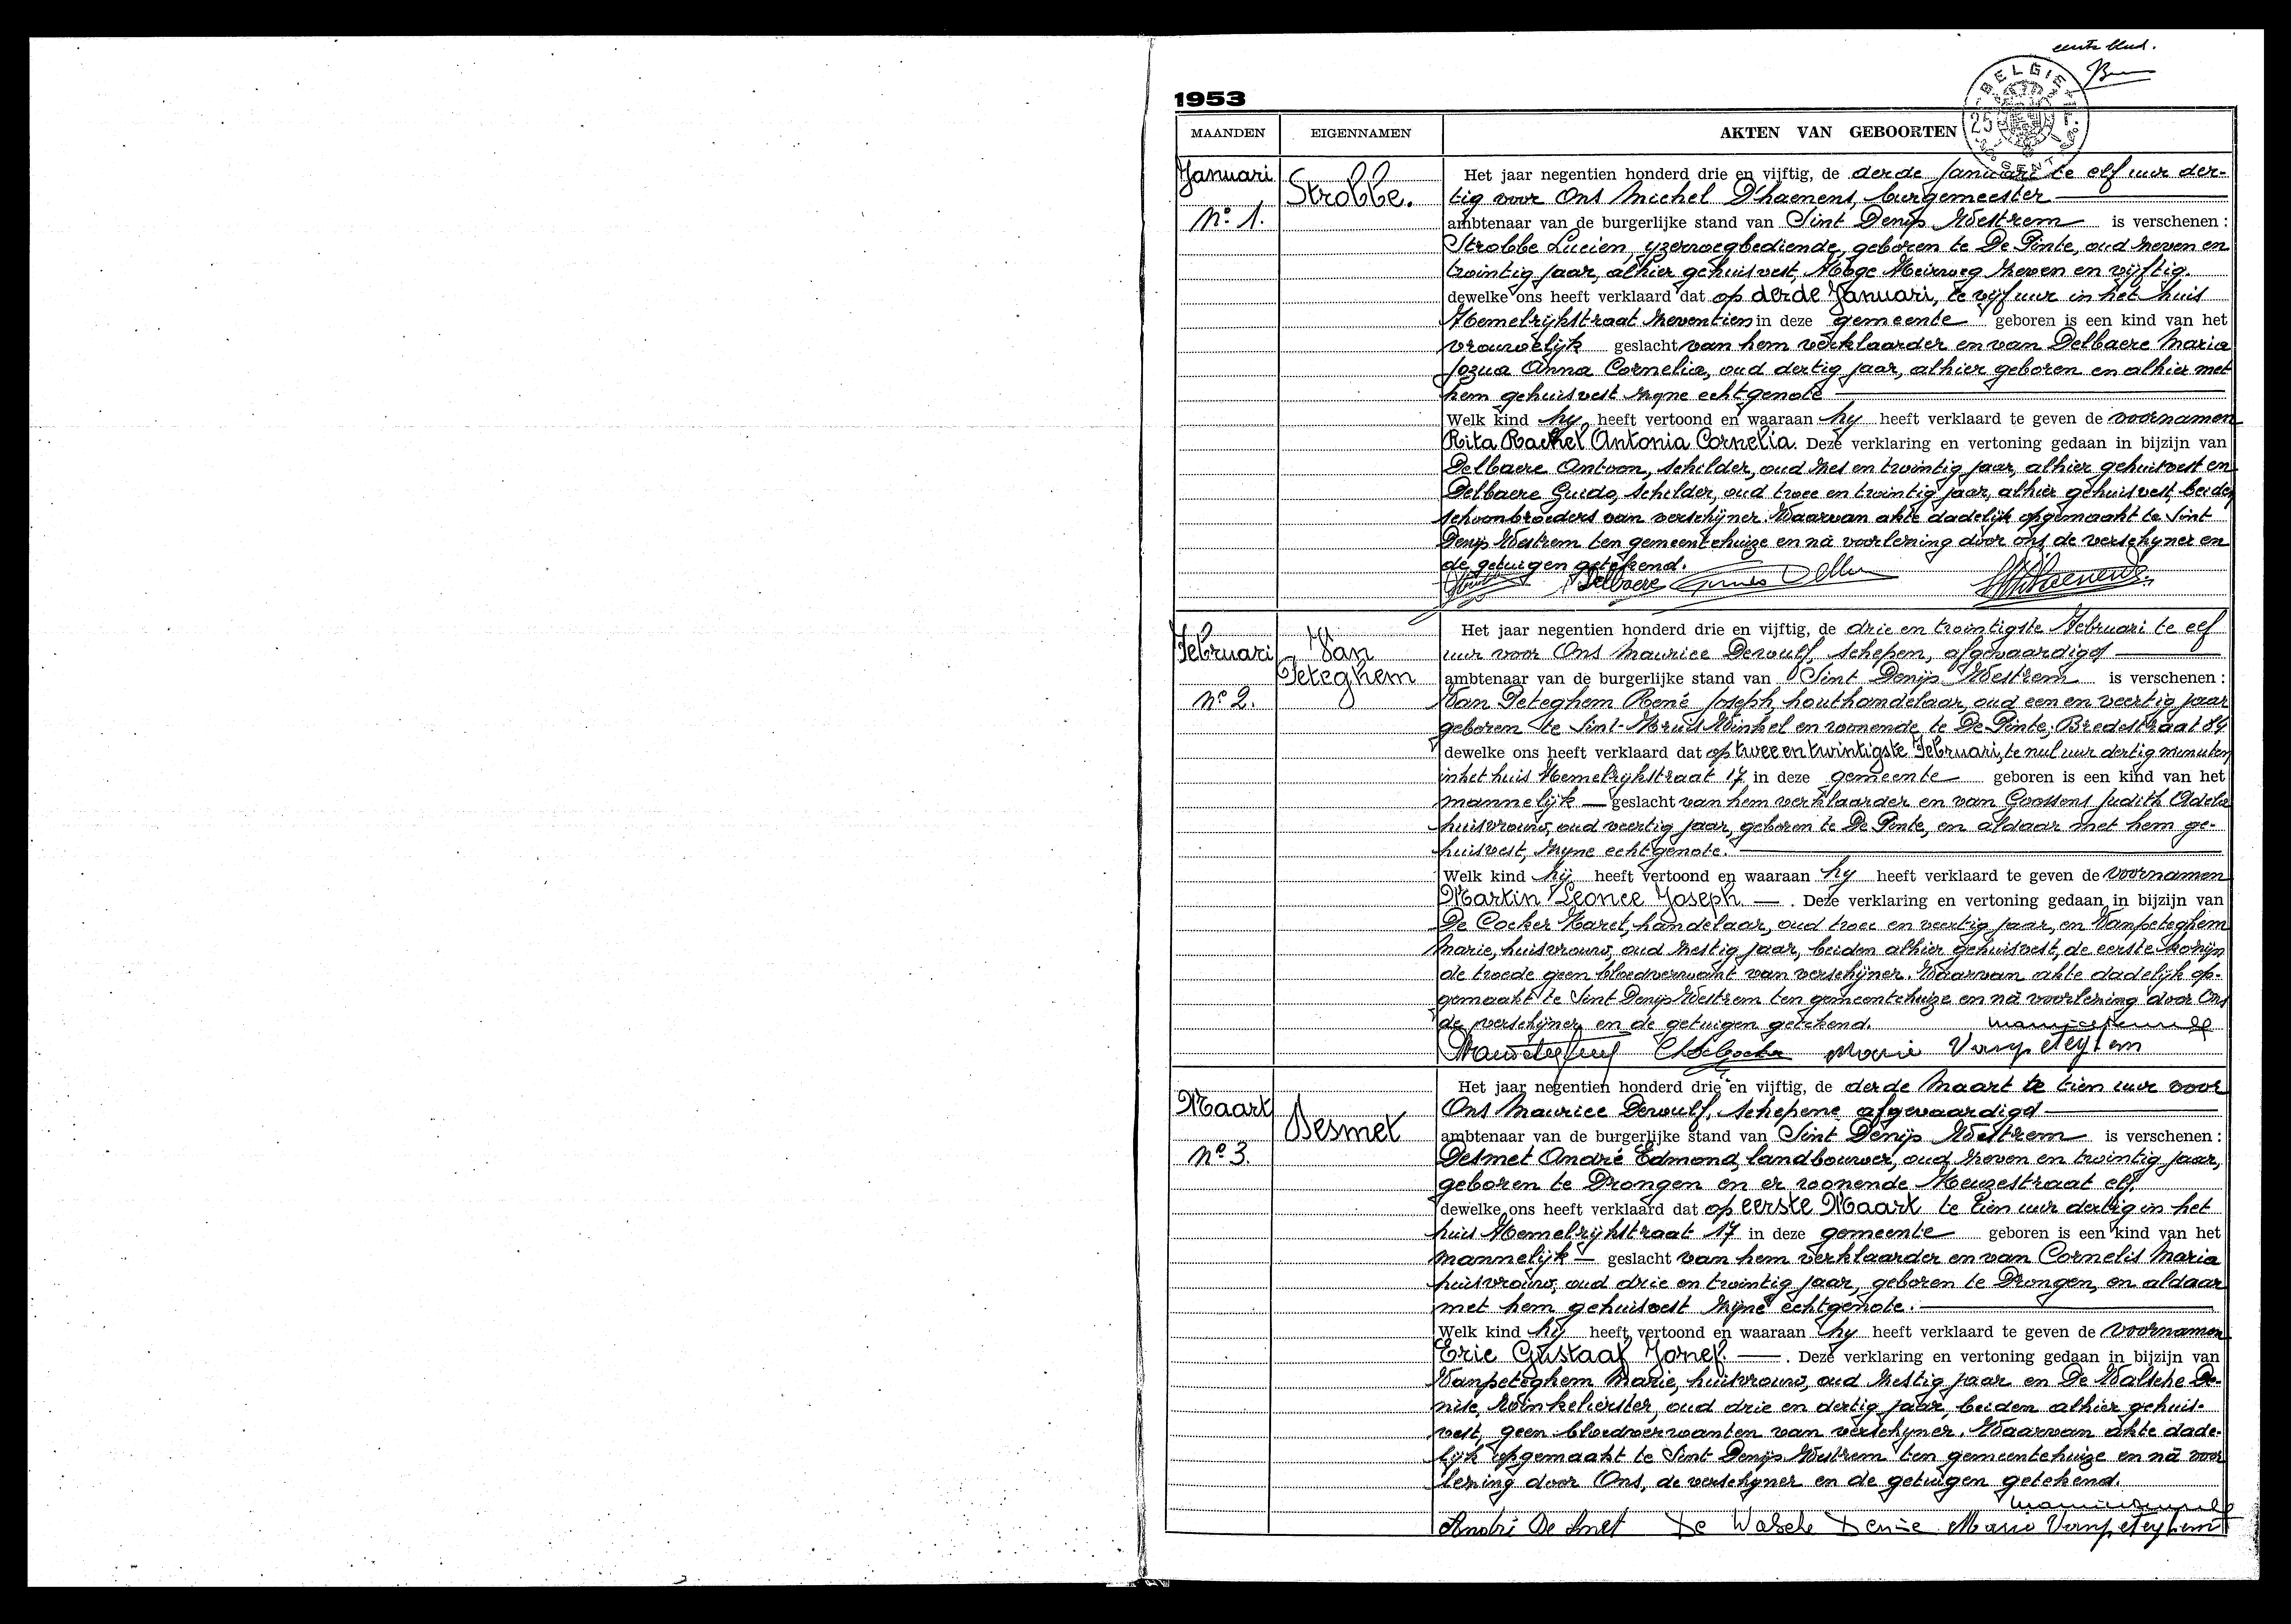 eerste blad.
1953
BELGIE
25
GENT
MAANDEN EIGENNAMEN AKTEN VAN GEBOORTEN
Januari
No 1.
Strobbe.
Het jaar negentien honderd drie en vijftig, de derde Januari te elf uur der-
tig voor Ons Michel D'haenens, burgemeester
ambtenaar van de burgerlijke stand van Sint Denijs Westrem is verschenen :
Strobbe Lucien, yzerwegbediende, geboren te De Pinte, oud zeven en
twintig jaar, alhier gehuisvest, Hoge Heirweg zeven en vijftig.
dewelke ons heeft verklaard dat op derde Januari, te vijf uur in het huis
Hemelrijkstraat zeventien in deze gemeente geboren is een kind van het
vrouwelijk geslacht van hem verklaarder en van Delbaere Maria
Jozua Anna Cornelia, oud dertig jaar, alhier geboren en alhier met
hem gehuisvest zijne echtgenote
Welk kind hy heeft vertoond en waaraan hy heeft verklaard te geven de voornamen
Rita Rachel Antonia Cornelia. Deze verklaring en vertoning gedaan in bijzijn van
Delbaere Antoon, schilder, oud zes en twintig jaar, alhier gehuisvest en
Delbaere Guido, schilder, oud twee en twintig jaar, alhier gehuisvest, beiden
schoonbroeders van verschijner. Waarvan akte dadelijk opgemaakt te Sint
Denijs Westrem ten gemeentehuize en nà voorlezing door ons de verschijner en
de getuigen getekend.
Delbaere Guido Delbaere
Februari
No 2.
Van
Peteghem
Het jaar negentien honderd drie en vijftig, de drie en twintigste Februari te elf
uur voor Ons Maurice Dewulf, schepen, afgevaardigd
ambtenaar van de burgerlijke stand van Sint Denijs Westrem is verschenen :
Van Peteghem René Joseph, houthandelaar, oud een en veertig jaar
geboren te Sint-Kruis Winkel en wonende te De Pinte, Bredestraat 84
dewelke ons heeft verklaard dat op twee en twintigste Februari, te nul uur dertig minuten
in het huis Hemelrijkstraat 17 in deze gemeente geboren is een kind van het
mannelijk geslacht van hem verklaarder en van Goossens Judith Adela
huisvrouw, oud veertig jaar, geboren te De Pinte, en aldaar met hem ge-
huisvest, zijne echtgenote.
Welk kind hij heeft vertoond en waaraan hy heeft verklaard te geven de voornamen
Martin Leonce Joseph. Deze verklaring en vertoning gedaan in bijzijn van
De Cocker Karel, handelaar, oud twee en veertig jaar, en Vanpeteghem
Marie, huisvrouw, oud zestig jaar, beiden alhier gehuisvest, de eerste kozijn
de tweede geen bloedverwant van verschijner. Waarvan akte dadelijk op-
gemaakt te Sint Denijs Westrem ten gemeentehuize en nà voorlezing door Ons
de verschijner en de getuigen getekend.
Marie Vanpeteghem
Maart
No 3.
Desmet
Het jaar negentien honderd drie en vijftig, de derde Maart te tien uur voor
Ons Maurice Dewulf, schepene afgevaardigd
ambtenaar van de burgerlijke stand van Sint Denijs Westrem is verschenen :
Desmet André Edmond, landbouwer, oud zeven en twintig jaar,
geboren te Drongen en er wonende Keuzestraat elf.
dewelke ons heeft verklaard dat op eerste Maart te tien uur dertig in het
huis Hemelrijkstraat 17 in deze gemeente geboren is een kind van het
mannelijk geslacht van hem verklaarder en van Cornelis Maria
huisvrouw, oud drie en twintig jaar, geboren te Drongen, en aldaar
met hem gehuisvest zijne echtgenote.
Welk kind hij heeft vertoond en waaraan hy heeft verklaard te geven de voornamen
Eric Gustaaf Jozef. Deze verklaring en vertoning gedaan in bijzijn van
Vanpeteghem Marie, huisvrouw, oud zestig jaar en De Walsche De-
nise, winkelierster, oud drie en dertig jaar, beiden alhier gehuis-
vest, geen bloedverwanten van verschijner. Waarvan akte dade-
lijk opgemaakt te Sint Denijs Westrem ten gemeentehuize en nà voor
lezing door Ons, de verschijner en de getuigen getekend.
André De Smet De Walsche Denise Marie Vanpeteghem